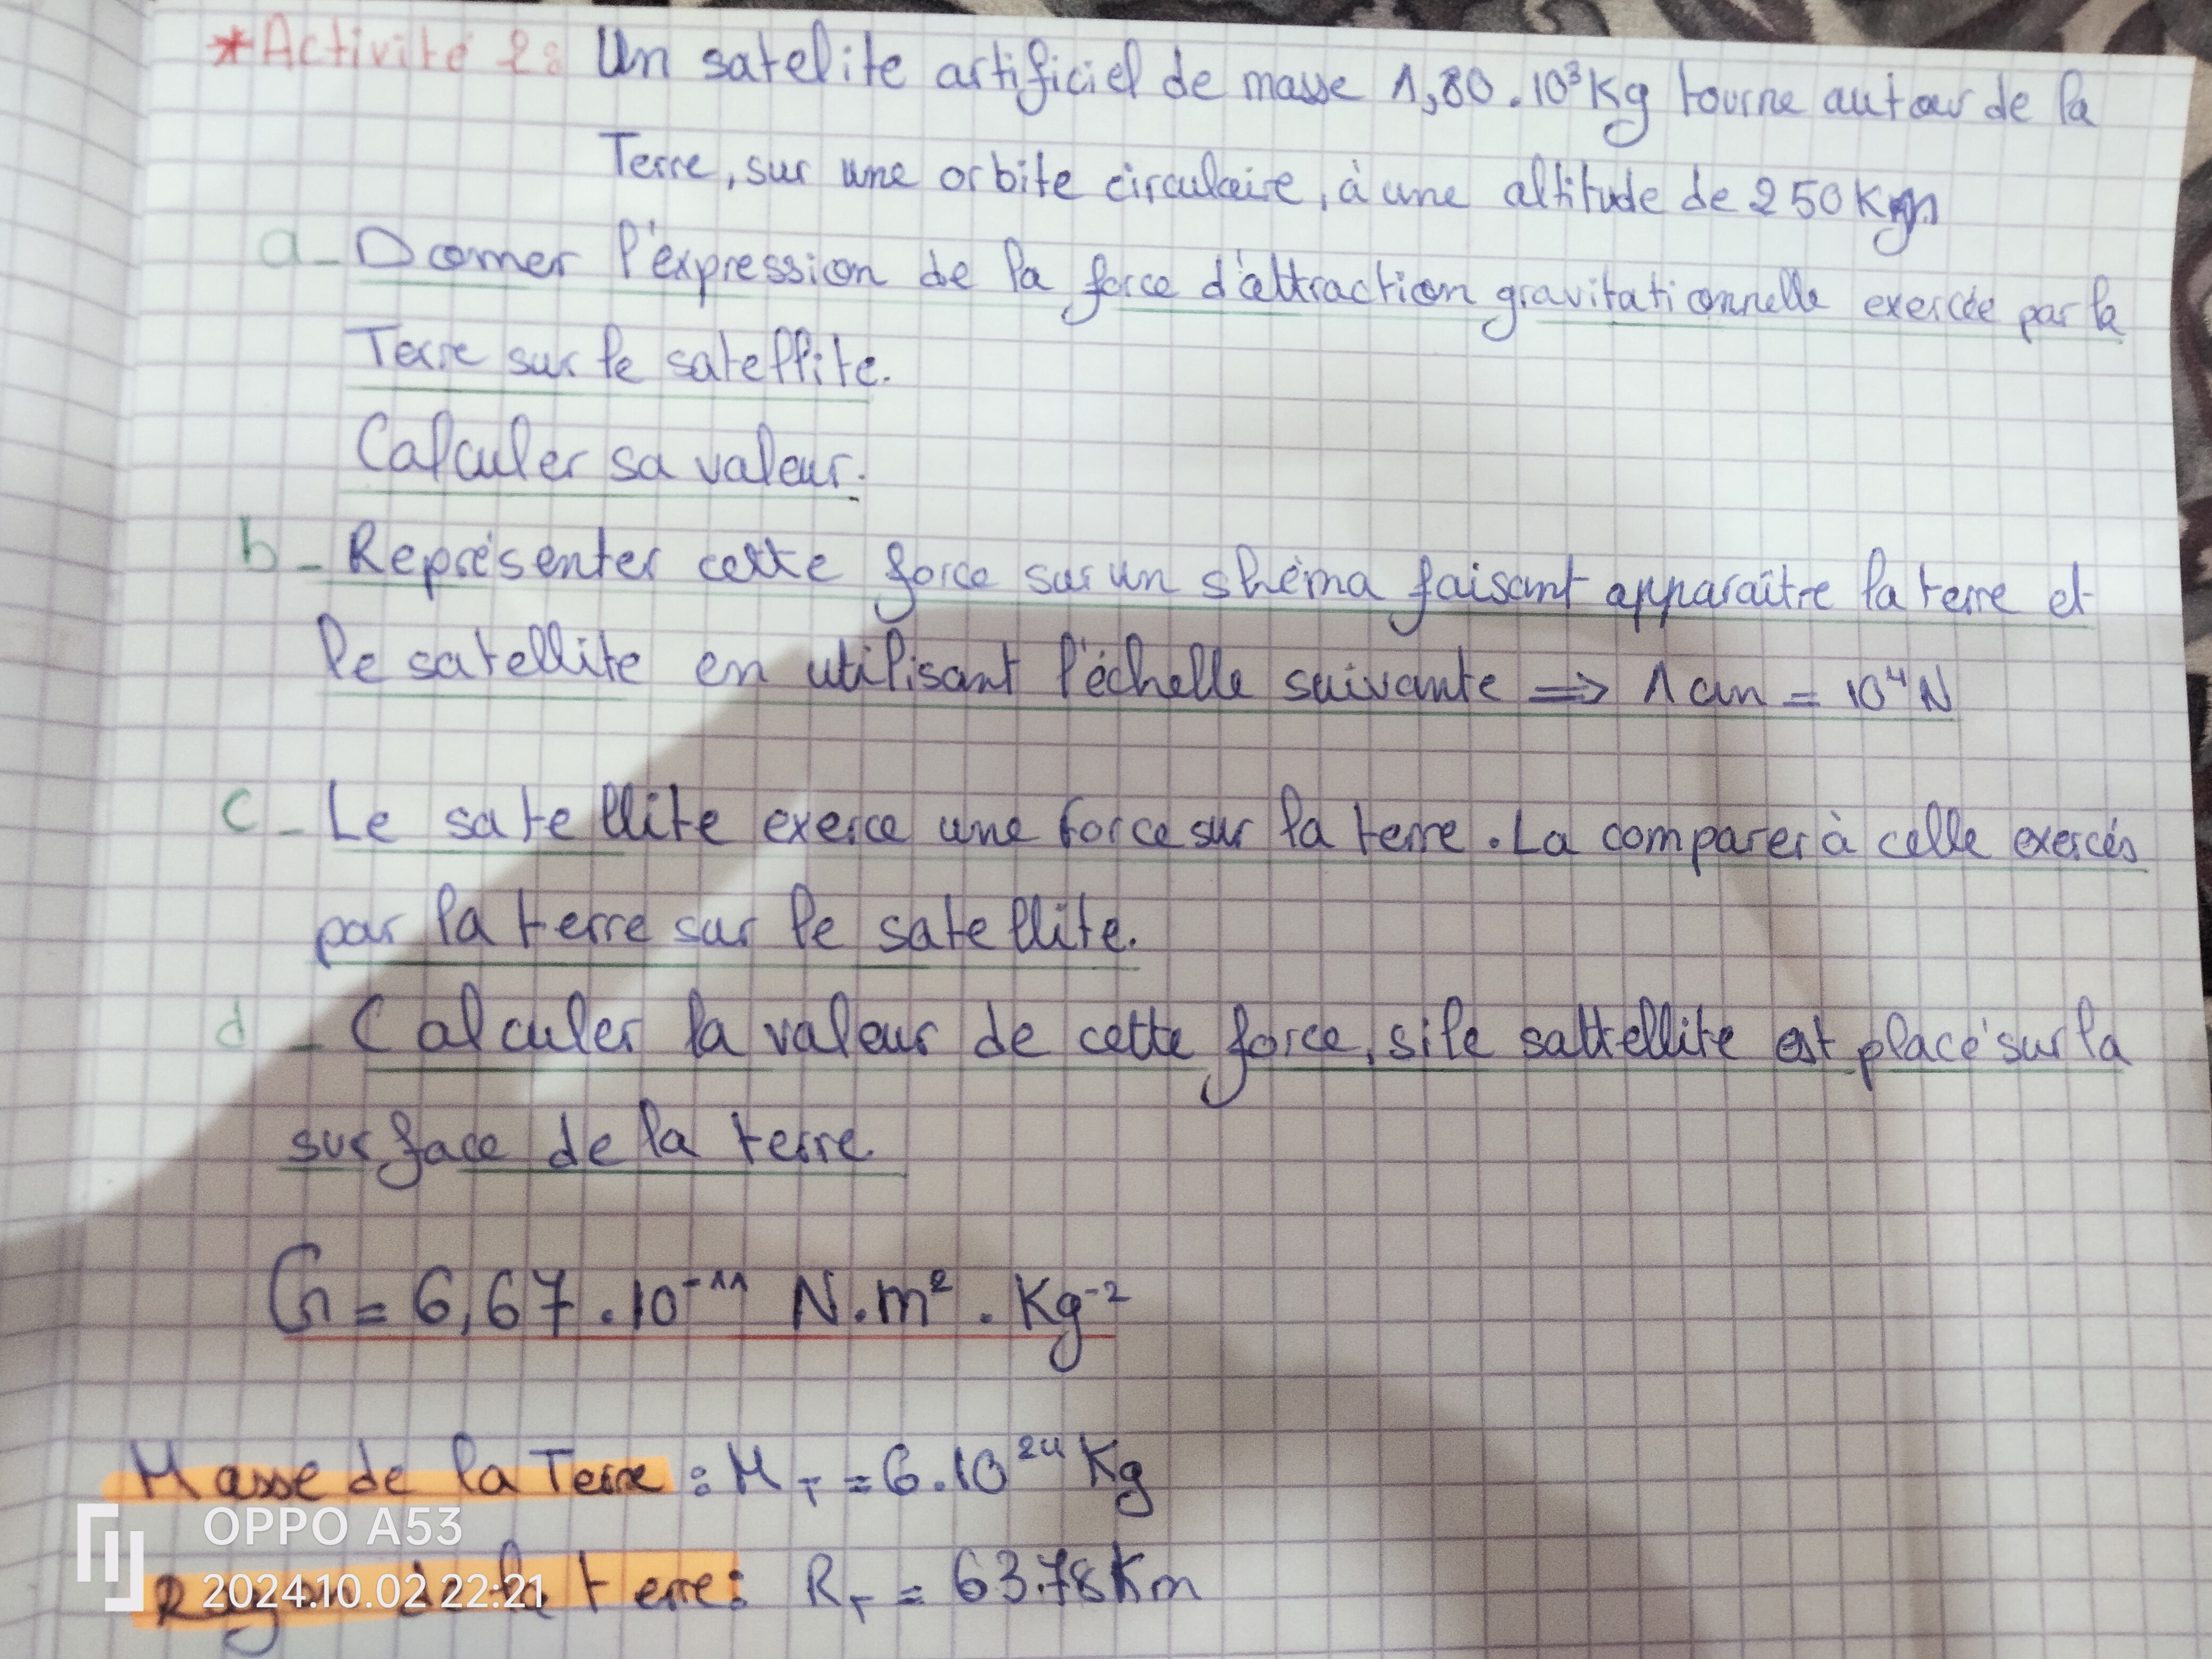 *Activité 2: Un satelite artificiel de masse 1,80.10³Kg tourne autour de la
Terre, sur une orbite circulaire, à une altitude de 250Km
a- Donner l'éxpression de la force d'attraction gravitationnelle exercée par la
Terre sur le satellite.
Calculer sa valeur.
b- Représenter cette force sur un shéma faisant apparaître la terre et
le satellite en utilisant l'échelle suivante => 1 cm = 10⁴N
c- Le satellite exerce une force sur la terre. La comparer à celle exercés
par la terre sur le satellite.
d- Calculer la valeur de cette force, si le sattellite est placé sur la
surface de la terre.
G = 6,67.10⁻¹¹ N.m².Kg⁻²
Masse de la Terre : M_T = 6.10²⁴ Kg
OPPO A53
Rayon de la terre: R_T = 6378Km
2024.10.02 22:21